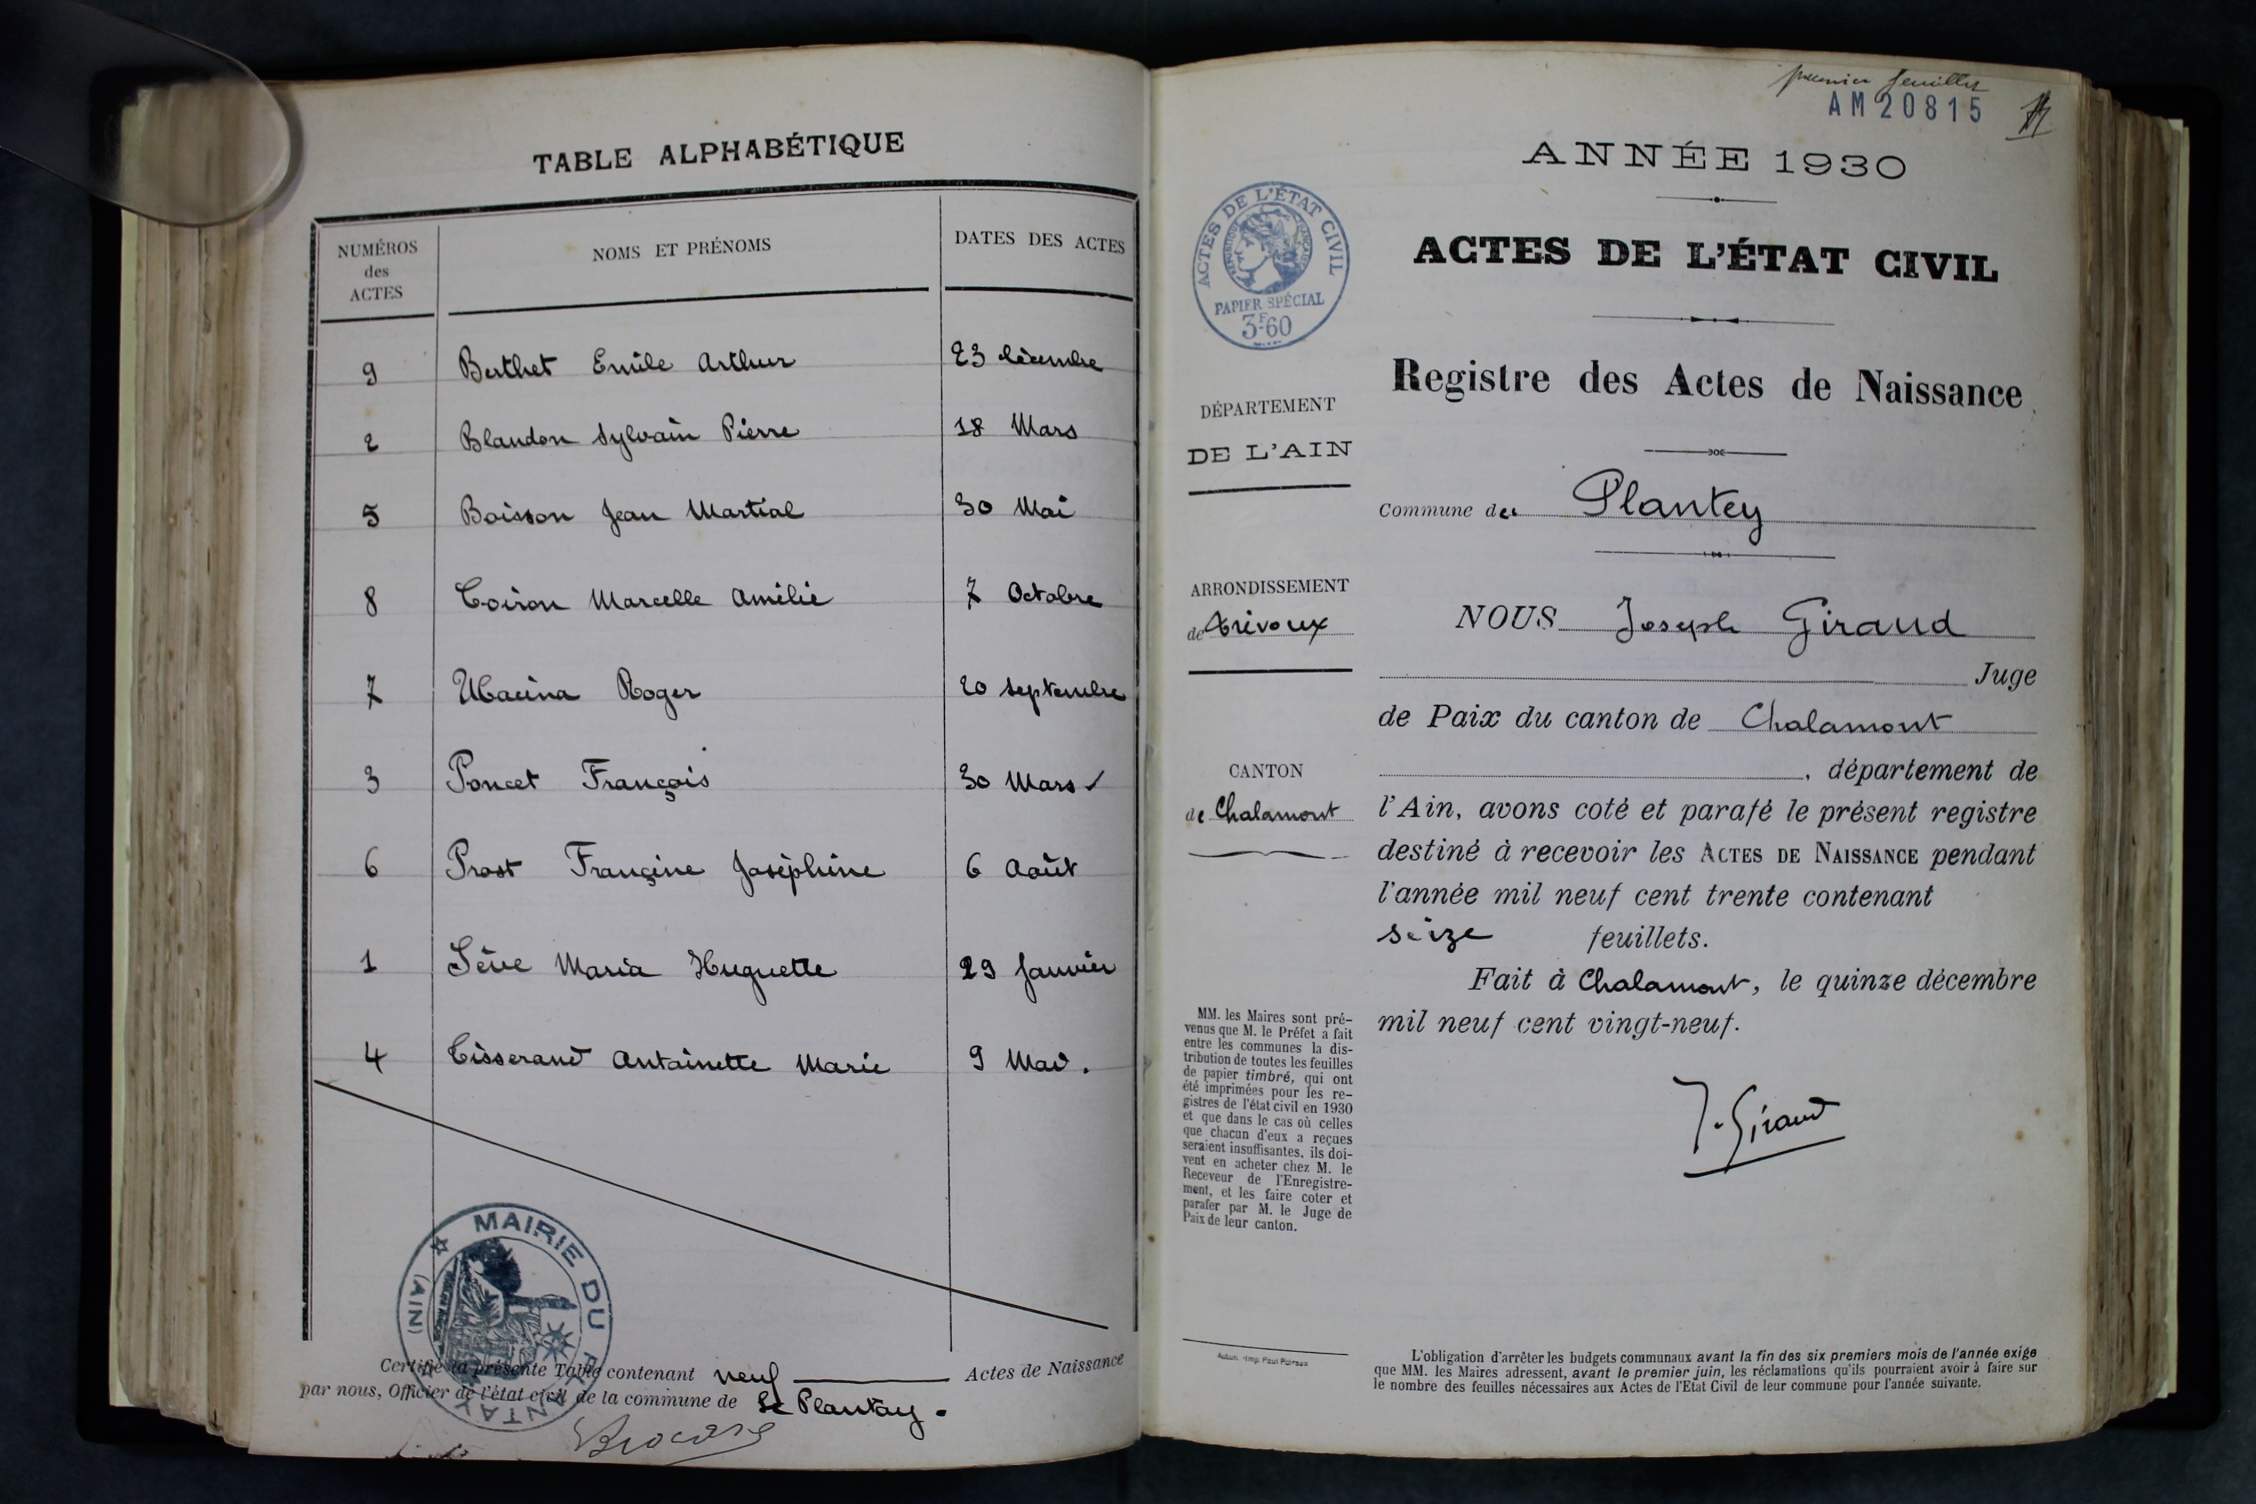 TABLE ALPHABÉTIQUE
NUMÉROS
des
ACTES
NOMS ET PRÉNOMS
DATES DES ACTES
9 Berthet Emile Arthur 23 décembre
2 Blandon Sylvain Pierre 18 Mars
5 Boisson Jean Martial 30 Mai
8 Coiron Marcelle Amélie 7 Octobre
7 Macina Roger 20 Septembre
3 Poncet François 30 Mars
6 Prost Françine Joséphine 6 Août
1 Sève Maria Huguette 29 Janvier
4 Tisserand Antoinette Marie 9 Mai.
MAIRIE DU PLANTAY
(AIN)
Certifié la présente Table contenant neuf Actes de Naissance
par nous, Officier de l'état civil de la commune de Le Plantay.
premier feuillet
AM20815
ANNÉE 1930
ACTES DE L'ÉTAT CIVIL
RÉPUBLIQUE FRANÇAISE
PAPIER SPÉCIAL
3F60
ACTES DE L'ÉTAT CIVIL
Registre des Actes de Naissance
DÉPARTEMENT
DE L'AIN
Commune du Plantey
ARRONDISSEMENT
de Trévoux
CANTON
de Chalamont
NOUS Joseph Giraud
Juge
de Paix du canton de Chalamont
, département de
l'Ain, avons coté et parafé le présent registre
destiné à recevoir les ACTES DE NAISSANCE pendant
l'année mil neuf cent trente contenant
seize feuillets.
Fait à Chalamont, le quinze décembre
mil neuf cent vingt-neuf.
J. Giraud
MM. les Maires sont pré-
venus que M. le Préfet a fait
entre les communes la dis-
tribution de toutes les feuilles
de papier timbré, qui ont
été imprimées pour les re-
gistres de l'état civil en 1930
et que dans le cas où celles
que chacun d'eux a reçues
seraient insuffisantes, ils doi-
vent en acheter chez M. le
Receveur de l'Enregistre-
ment, et les faire coter et
parafer par M. le Juge de
Paix de leur canton.
L'obligation d'arrêter les budgets communaux avant la fin des six premiers mois de l'année exige
que MM. les Maires adressent, avant le premier juin, les réclamations qu'ils pourraient avoir à faire sur
le nombre des feuilles nécessaires aux Actes de l'Etat Civil de leur commune pour l'année suivante.